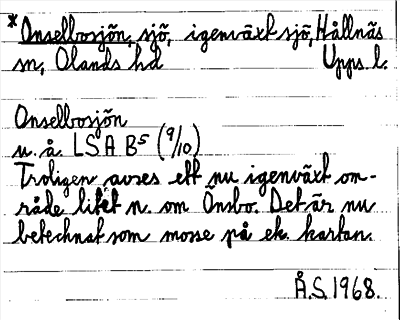 *Onselbosjön, sjö, igenväxt sjö, Hållnäs
sn, Olands hd Upps. l.
Onselbosjön
u. å. LSA B5 (9/10)
Troligen avses ett nu igenväxt om-
råde litet n. om Önsbo. Det är nu
betecknat som mosse på ek. kartan.
Å.S. 1968.